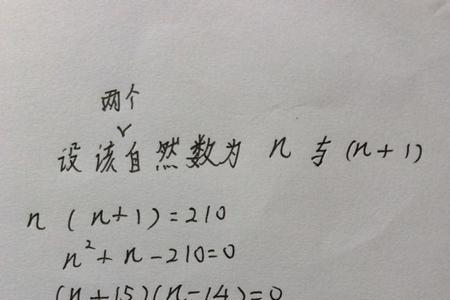 两个
设该自然数为 n 与 (n+1)
n (n+1)=210
n²+n-210=0
(n+15)(n-14)=0